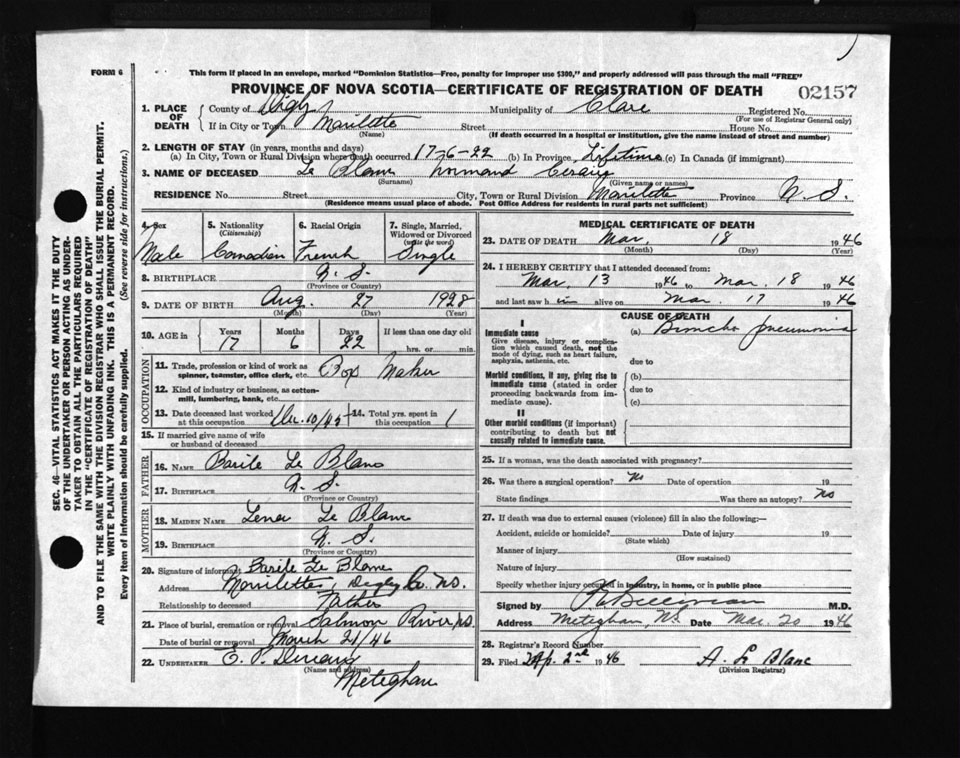 FORM 6
This form if placed in an envelope, marked "Dominion Statistics—Free, penalty for improper use $300," and properly addressed will pass through the mail "FREE"
PROVINCE OF NOVA SCOTIA—CERTIFICATE OF REGISTRATION OF DEATH 02157
1. PLACE OF DEATH County of Digby Municipality of Clare Registered No.
(For use of Registrar General only)
If in City or Town Street House No.
(Name) (If death occurred in a hospital or institution, give the name instead of street and number)
2. LENGTH OF STAY (in years, months and days)
(a) In City, Town or Rural Division where death occurred 17-6-22 (b) In Province Lifetime (c) In Canada (if immigrant)
3. NAME OF DECEASED Le Blanc Normand
(Surname) (Given name or names)
RESIDENCE No. Street City, Town or Rural Division Province N. S.
(Residence means usual place of abode. Post Office Address for residents in rural parts not sufficient)
4. Sex 5. Nationality 6. Racial Origin 7. Single, Married, Widowed or Divorced
(Citizenship) (write the word)
Male Canadian French Single
8. BIRTHPLACE N. S.
(Province or Country)
9. DATE OF BIRTH Aug. 27 1928
(Month) (Day) (Year)
10. AGE in Years Months Days If less than one day old
17 6 22 hrs. or min.
OCCUPATION
11. Trade, profession or kind of work as Maker
spinner, teamster, office clerk, etc.
12. Kind of industry or business, as cotton-
mill, lumbering, bank, etc.
13. Date deceased last worked at this occupation Dec. 10/45 14. Total yrs. spent in this occupation 1
15. If married give name of wife
or husband of deceased
FATHER
16. NAME Basile Le Blanc
17. BIRTHPLACE N. S.
(Province or Country)
MOTHER
18. MAIDEN NAME Lena Le Blanc
19. BIRTHPLACE N. S.
(Province or Country)
20. Signature of informant Basile Le Blanc
Address Digby Co. N.S.
Relationship to deceased Father
21. Place of burial, cremation or removal Salmon River N.S.
Date of burial or removal March 21/46
22. UNDERTAKER E. P.
(Name and address)
Meteghan
MEDICAL CERTIFICATE OF DEATH
23. DATE OF DEATH Mar. 18 1946
(Month) (Day) (Year)
24. I HEREBY CERTIFY that I attended deceased from:
Mar. 13 1946 to Mar. 18 1946
and last saw him alive on Mar. 17 1946
CAUSE OF DEATH
I
Immediate cause (a) Broncho pneumonia
Give disease, injury or complica-
tion which caused death, not the
mode of dying, such as heart failure,
asphyxia, asthenia, etc. due to
Morbid conditions, if any, giving rise to (b)
immediate cause (stated in order due to
proceeding backwards from im-
mediate cause). (c)
II
Other morbid conditions (if important)
contributing to death but not
causally related to immediate cause.
25. If a woman, was the death associated with pregnancy?
26. Was there a surgical operation? No Date of operation 19
State findings Was there an autopsy? No
27. If death was due to external causes (violence) fill in also the following:—
Accident, suicide or homicide? Date of injury 19
(State which)
Manner of injury
(How sustained)
Nature of injury
Specify whether injury occurred in industry, in home, or in public place
Signed by M.D.
Address Meteghan, N.S. Date Mar. 20 1946
28. Registrar's Record Number
29. Filed Ap. 2nd 1946 A. Le Blanc
(Division Registrar)
SEC. 46—VITAL STATISTICS ACT MAKES IT THE DUTY
OF THE UNDERTAKER OR PERSON ACTING AS UNDER-
TAKER TO OBTAIN ALL THE PARTICULARS REQUIRED
IN THE "CERTIFICATE OF REGISTRATION OF DEATH"
AND TO FILE THE SAME WITH THE DIVISION REGISTRAR WHO SHALL ISSUE THE BURIAL PERMIT.
WRITE PLAINLY WITH UNFADING INK. THIS IS A PERMANENT RECORD.
Every item of information should be carefully supplied. (See reverse side for instructions.)